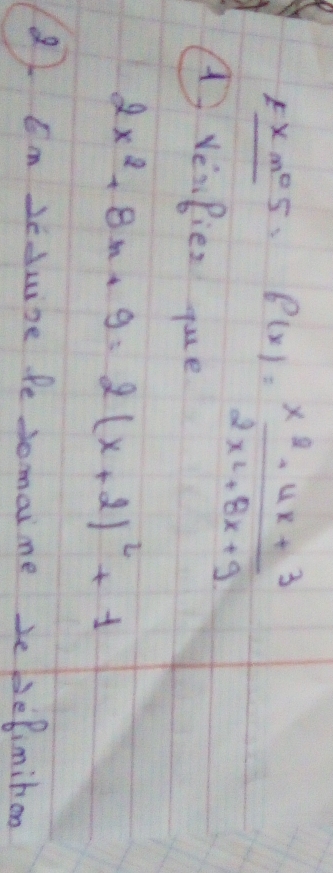 Ex n° 5: f(x) = x² + 4x + 3 / 2x² + 8x + 9
1. Vérifier que
2x² + 8x + 9 = 2(x+2)² + 1
2. En déduire le domaine de définition